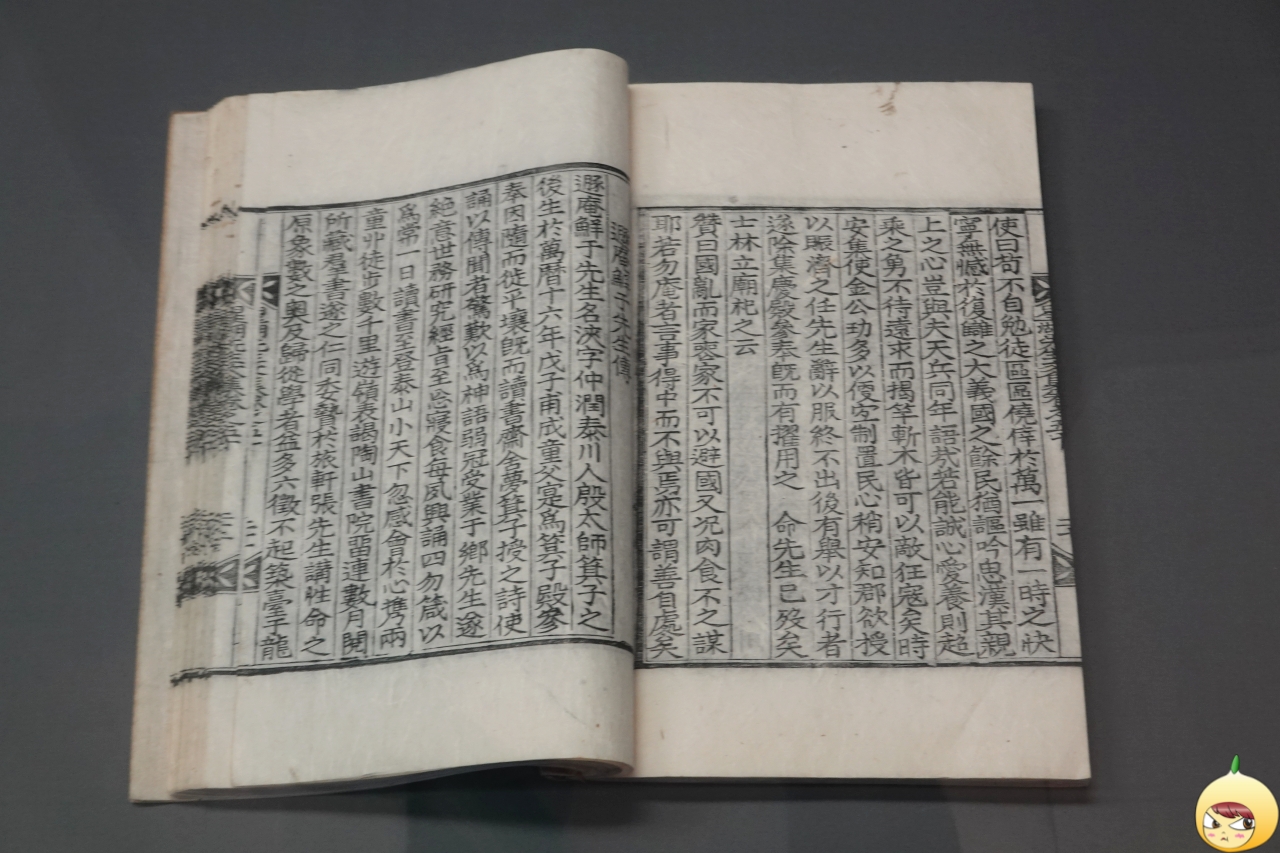 使曰苟不自勉徒區區僥倖於萬一雖有一時之快
寧無憾於復讎之大義國之餘民猶謳吟思漢其親
上之心豈與夫天兵同年語哉若能誠心愛養則超
乘之勇不待遠求而揭竿斬木皆可以敵狂寇矣時
安集使金公功多以便宜制置民心稍安知郡欲授
以賑濟之任先生辭以服終不出後有舉以才行者
遂除集慶殿參奉旣而有擢用之 命先生已歿矣
士林立廟祀之云
贊曰國亂而家喪家不可以避國又况肉食不之謀
耶若勿庵者言事得中而不與焉亦可謂善自處矣
遯庵鮮于先生傳
遯庵鮮于先生名浹字仲潤泰川人殷太師箕子之
後生於萬曆十六年戊子甫成童父寔爲箕子殿參
奉因隨而從平壤旣而讀書齋舍夢箕子授之詩使
誦以傳聞者驚歎以爲神語弱冠受業于鄉先生遂
絶意世務研究經旨至忘寢食每夙興誦四勿箴以
爲常一日讀書至登泰山小天下忽感會於心携兩
童丱徒步數千里遊嶺表謁陶山書院畱連數月閱
所藏羣書遂之仁同委贄於旅軒張先生講性命之
原象數之奧及歸從學者益多六徵不起築臺于龍